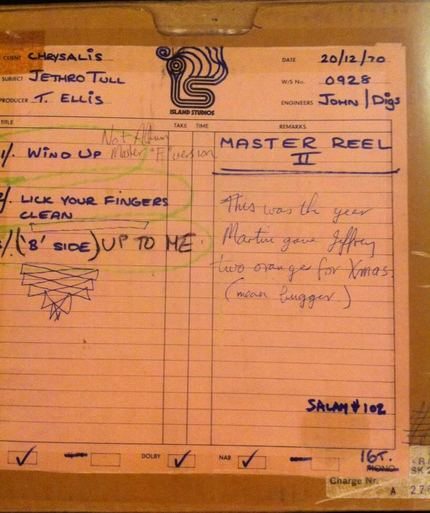 CLIENT CHRYSALIS
SUBJECT JETHRO TULL
PRODUCER T. ELLIS
ISLAND STUDIOS
DATE 20/12/70
W/S No. 0928
ENGINEERS John / Digs
TITLE TAKE TIME REMARKS
Not Album
1/. WIND UP Master "E" version
MASTER REEL
II
2/. LICK YOUR FINGERS
CLEAN
/. ('B' SIDE) UP TO ME
This was the year
Martin gave Jeffrey
two oranges for Xmas
(mean bugger.)
SALAMI # 102
DOLBY NAB 16T.
MONO
Charge No.
A 27
SK 2